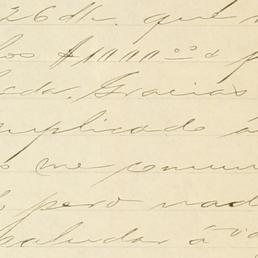 26 dls. que
los $1000.00 á p
cada. Gracias
mplicado á
me comun
pero nad
saludar á